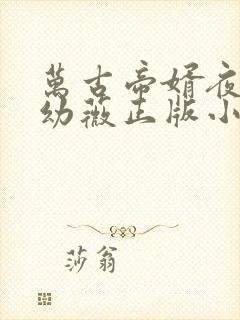 萬古帝婿夜
幼薇正版小
莎翁